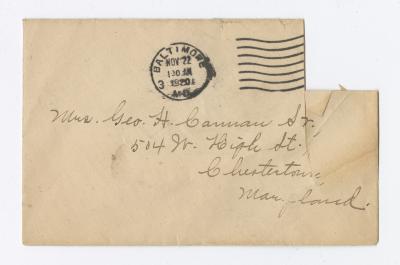 BALTIMORE
NOV 22
1 30 AM
1920
3
Mrs. Geo. H. Cannan Sr.
504 W. High St.
Chestertown,
Maryland.